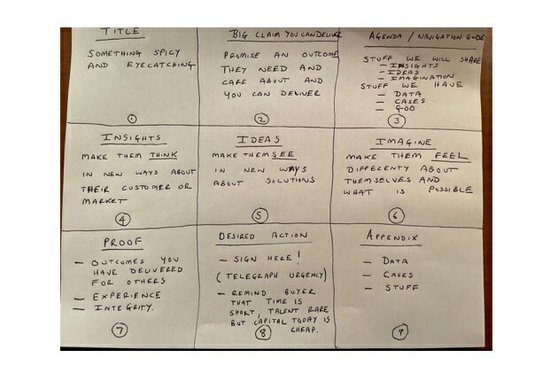 TITLE
SOMETHING SPICY
AND EYECATCHING
①
BIG CLAIM YOU CAN DELIVER
PROMISE AN OUTCOME
THEY NEED AND
CARE ABOUT AND
YOU CAN DELIVER
②
AGENDA / NAVIGATION GUIDE
STUFF WE WILL SHARE
- INSIGHTS
- IDEAS
- IMAGINATION
STUFF WE HAVE
- DATA
- CASES
- GOO
③
INSIGHTS
MAKE THEM THINK
IN NEW WAYS ABOUT
THEIR CUSTOMER OR
MARKET
④
IDEAS
MAKE THEM SEE
IN NEW WAYS
ABOUT SOLUTIONS
⑤
IMAGINE
MAKE THEM FEEL
DIFFERENTLY ABOUT
THEMSELVES AND
WHAT IS POSSIBLE
⑥
PROOF
- OUTCOMES YOU
HAVE DELIVERED
FOR OTHERS
- EXPERIENCE
- INTEGRITY.
⑦
DESIRED ACTION
- SIGN HERE!
(TELEGRAPH URGENCY)
- REMIND BUYER
THAT TIME IS
SHORT, TALENT RARE
BUT CAPITAL TODAY IS
CHEAP.
⑧
APPENDIX
- DATA
- CASES
- STUFF
⑨